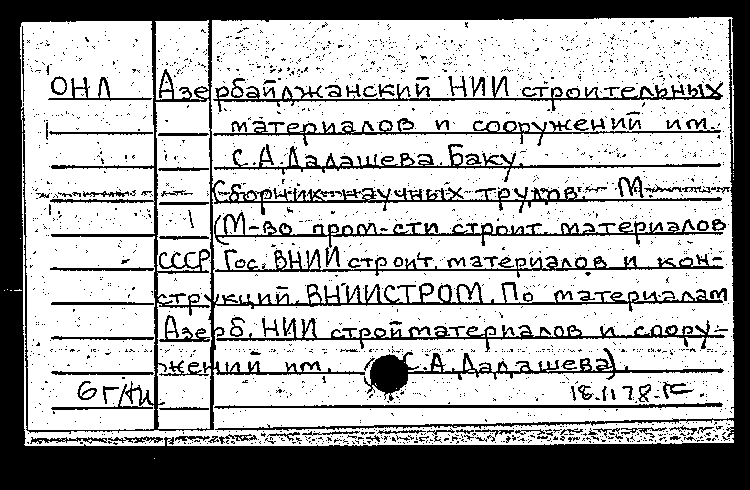 ОНЛ Азербайджанский НИИ строительных
материалов и сооружений им.
С.А.Дадашева. Баку.
Сборник научных трудов. - М.
(М-во пром-сти строит. материалов
СССР. Гос. ВНИИ строит. материалов и кон-
струкций. ВНИИСТРОМ. По материалам
Азерб. НИИ стройматериалов и соору-
жений им. С.А.Дадашева).
18.11.78.